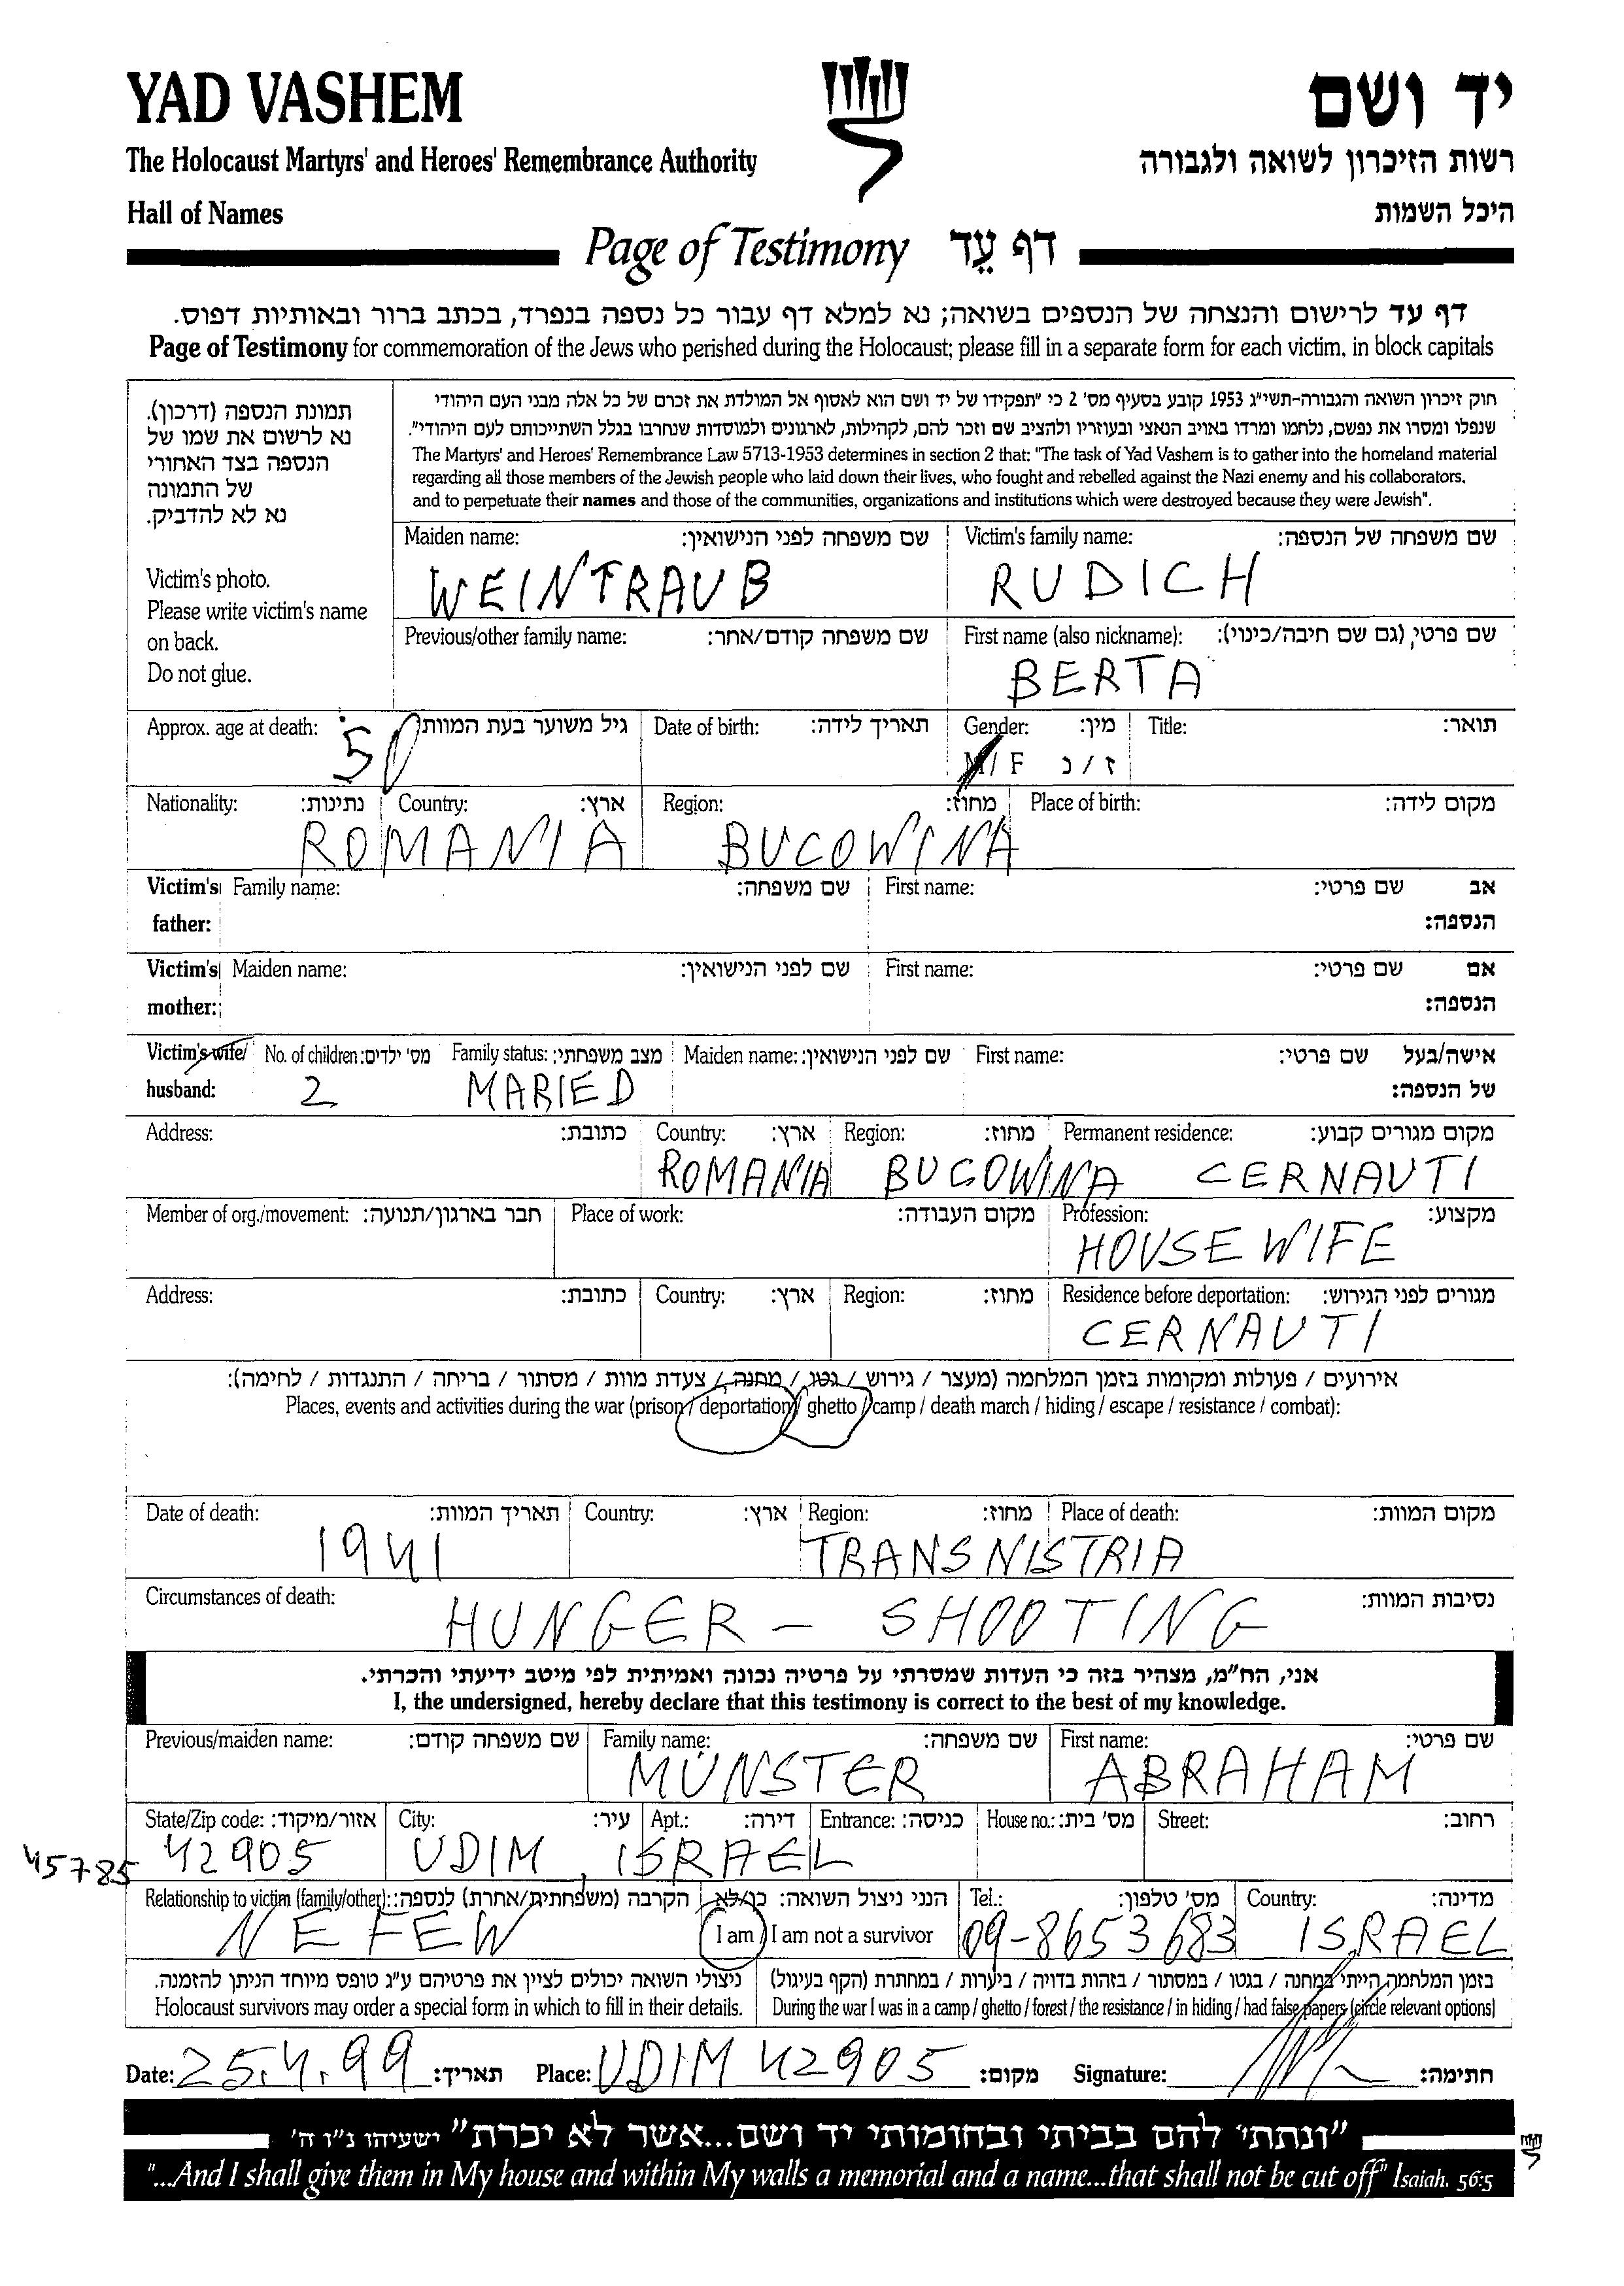 YAD VASHEM
יד ושם
The Holocaust Martyrs' and Heroes' Remembrance Authority
רשות הזיכרון לשואה ולגבורה
Hall of Names
היכל השמות
Page of Testimony דף עֵד
דף עד לרישום והנצחה של הנספים בשואה; נא למלא דף עבור כל נספה בנפרד, בכתב ברור ובאותיות דפוס.
Page of Testimony for commemoration of the Jews who perished during the Holocaust; please fill in a separate form for each victim, in block capitals
תמונת הנספה (דרכון).
נא לרשום את שמו של
הנספה בצד האחורי
של התמונה
נא לא להדביק.
Victim's photo.
Please write victim's name
on back.
Do not glue.
חוק זיכרון השואה והגבורה-תשי"ג 1953 קובע בסעיף מס' 2 כי "תפקידו של יד ושם הוא לאסוף אל המולדת את זכרם של כל אלה מבני העם היהודי
שנפלו ומסרו את נפשם, נלחמו ומרדו באויב הנאצי ובעוזריו ולהציב שם וזכר להם, לקהילות, לארגונים ולמוסדות שנחרבו בגלל השתייכותם לעם היהודי".
The Martyrs' and Heroes' Remembrance Law 5713-1953 determines in section 2 that: "The task of Yad Vashem is to gather into the homeland material
regarding all those members of the Jewish people who laid down their lives, who fought and rebelled against the Nazi enemy and his collaborators,
and to perpetuate their names and those of the communities, organizations and institutions which were destroyed because they were Jewish".
Maiden name: שם משפחה לפני הנישואין: Victim's family name: שם משפחה של הנספה:
WEINTRAUB RUDICH
Previous/other family name: שם משפחה קודם/אחר: First name (also nickname): שם פרטי, (גם שם חיבה/כינוי):
BERTA
Approx. age at death: גיל משוער בעת המוות: Date of birth: תאריך לידה: Gender: מין: Title: תואר:
50 M/F ז/נ
Nationality: נתינות: Country: ארץ: Region: מחוז: Place of birth: מקום לידה:
ROMANIA BUCOWINA
Victim's Family name: שם משפחה: First name: שם פרטי: אב
father: הנספה:
Victim's Maiden name: שם לפני הנישואין: First name: שם פרטי: אם
mother: הנספה:
Victim's wife/ No. of children: מס' ילדים: Family status: מצב משפחתי: Maiden name: שם לפני הנישואין: First name: שם פרטי: אישה/בעל
husband: 2 MARIED של הנספה:
Address: כתובת: Country: ארץ: Region: מחוז: Permanent residence: מקום מגורים קבוע:
ROMANIA BUCOWINA CERNAUTI
Member of org./movement: חבר בארגון/תנועה: Place of work: מקום העבודה: Profession: מקצוע:
HOUSEWIFE
Address: כתובת: Country: ארץ: Region: מחוז: Residence before deportation: מגורים לפני הגירוש:
CERNAUTI
אירועים / פעולות ומקומות בזמן המלחמה (מעצר / גירוש / גטו / מחנה / צעדת מוות / מסתור / בריחה / התנגדות / לחימה):
Places, events and activities during the war (prison / deportation / ghetto / camp / death march / hiding / escape / resistance / combat):
Date of death: תאריך המוות: Country: ארץ: Region: מחוז: Place of death: מקום המוות:
1941 TRANSNISTRIA
Circumstances of death: נסיבות המוות:
HUNGER - SHOOTING
אני, הח"מ, מצהיר בזה כי העדות שמסרתי על פרטיה נכונה ואמיתית לפי מיטב ידיעתי והכרתי.
I, the undersigned, hereby declare that this testimony is correct to the best of my knowledge.
Previous/maiden name: שם משפחה קודם: Family name: שם משפחה: First name: שם פרטי:
MÜNSTER ABRAHAM
State/Zip code: אזור/מיקוד: City: עיר: Apt.: דירה: Entrance: כניסה: House no.: מס' בית: Street: רחוב:
45785 42905 UDIM, ISRAEL
Relationship to victim (family/other): הקרבה (משפחתית/אחרת) לנספה: הנני ניצול השואה: כן/לא Tel.: מס' טלפון: Country: מדינה:
NEFEW I am / I am not a survivor 09-8653683 ISRAEL
ניצולי השואה יכולים לציין את פרטיהם ע"ג טופס מיוחד הניתן להזמנה. בזמן המלחמה הייתי במחנה / בגטו / במסתור / בזהות בדויה / ביערות / במחתרת (הקף בעיגול)
Holocaust survivors may order a special form in which to fill in their details. During the war I was in a camp / ghetto / forest / the resistance / in hiding / had false papers (circle relevant options)
Date: 25.4.99 תאריך: Place: UDIM 42905 מקום: Signature: חתימה:
"ונתתי להם בביתי ובחומותי יד ושם...אשר לא יכרת" ישעיהו נ"ו ה'
"...And I shall give them in My house and within My walls a memorial and a name...that shall not be cut off" Isaiah. 56:5